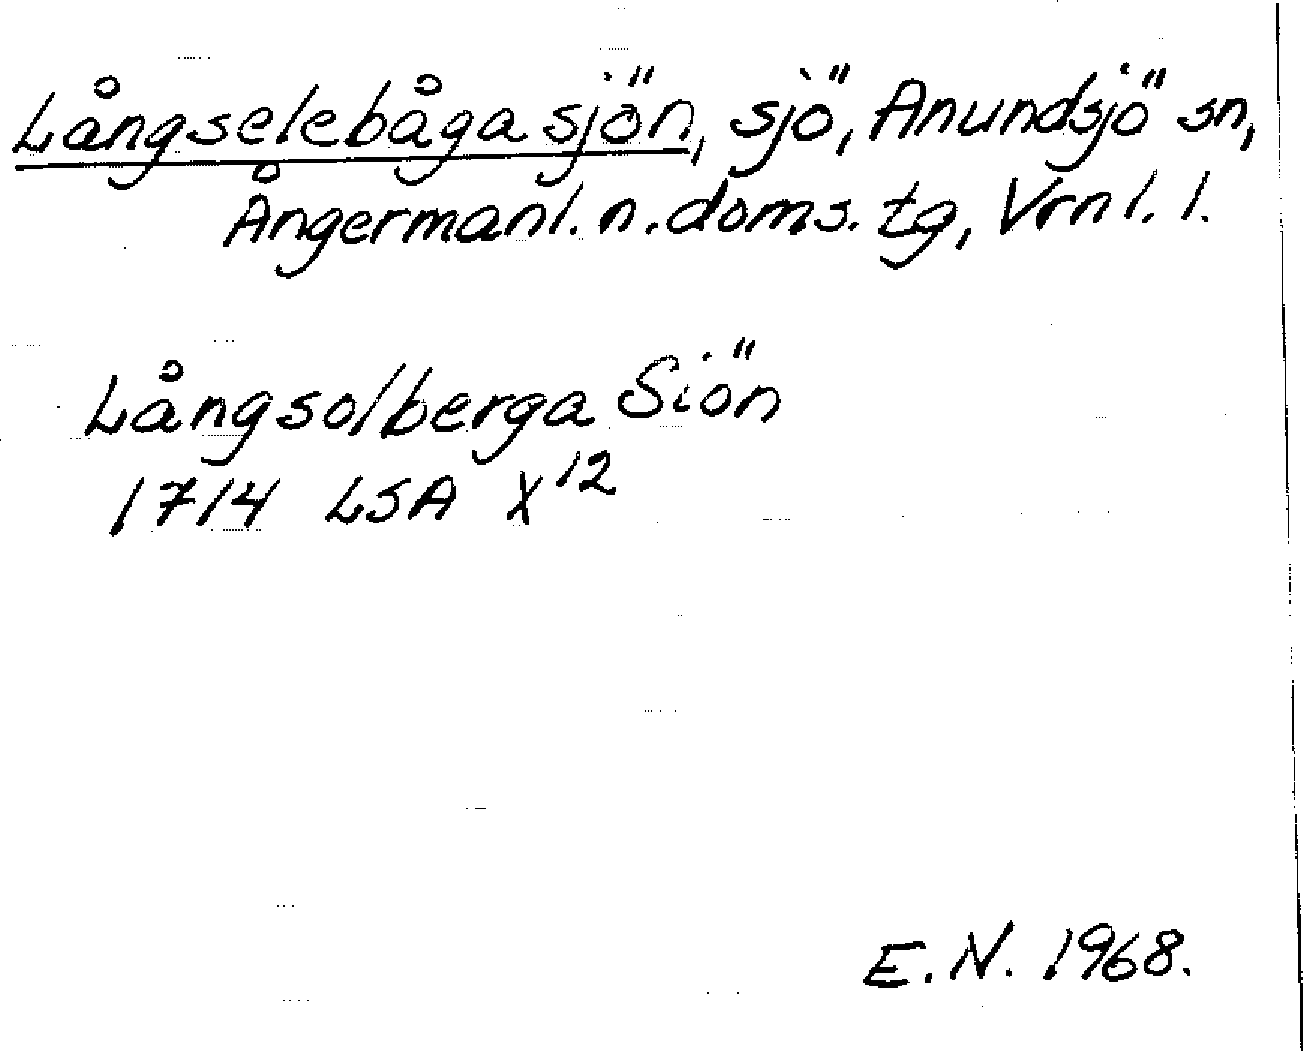 Långselebågasjön, sjö, Anundsjö sn,
Ångermanl. n. doms. tg, Vrnl. l.
Långsolberga Siön
1714 LSA X¹²
E.N. 1968.